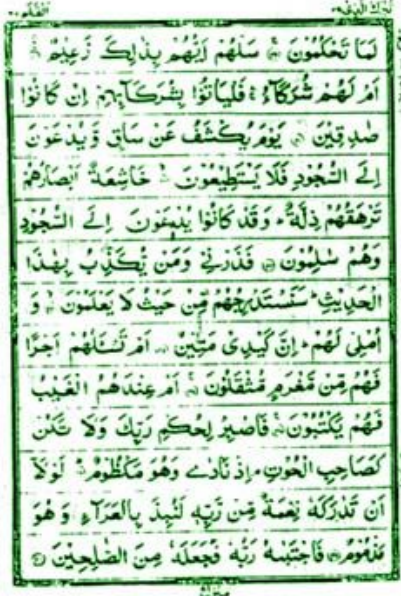 تبٰرك الذی ٢٩ القلم ٦٨
لَمَا تَحْكُمُوْنَ ۝ سَلْهُمْ اَيُّهُمْ بِذٰلِكَ زَعِيْمٌ ۝
اَمْ لَهُمْ شُرَكَآءُ ۚ فَلْيَاْتُوْا بِشُرَكَآئِهِمْ اِنْ كَانُوْا
صٰدِقِيْنَ ۝ يَوْمَ يُكْشَفُ عَنْ سَاقٍ وَّيُدْعَوْنَ
اِلَى السُّجُوْدِ فَلَا يَسْتَطِيْعُوْنَ ۝ خَاشِعَةً اَبْصَارُهُمْ
تَرْهَقُهُمْ ذِلَّةٌ ؕ وَقَدْ كَانُوْا يُدْعَوْنَ اِلَى السُّجُوْدِ
وَهُمْ سٰلِمُوْنَ ۝ فَذَرْنِيْ وَمَنْ يُّكَذِّبُ بِهٰذَا
الْحَدِيْثِ ؕ سَنَسْتَدْرِجُهُمْ مِّنْ حَيْثُ لَا يَعْلَمُوْنَ ۝ وَ
اُمْلِيْ لَهُمْ ؕ اِنَّ كَيْدِيْ مَتِيْنٌ ۝ اَمْ تَسْـَٔلُهُمْ اَجْرًا
فَهُمْ مِّنْ مَّغْرَمٍ مُّثْقَلُوْنَ ۝ اَمْ عِنْدَهُمُ الْغَيْبُ
فَهُمْ يَكْتُبُوْنَ ۝ فَاصْبِرْ لِحُكْمِ رَبِّكَ وَلَا تَكُنْ
كَصَاحِبِ الْحُوْتِ ۘ اِذْ نَادٰى وَهُوَ مَكْظُوْمٌ ۝ لَوْلَآ
اَنْ تَدٰرَكَهٗ نِعْمَةٌ مِّنْ رَّبِّهٖ لَنُبِذَ بِالْعَرَآءِ وَهُوَ
مَذْمُوْمٌ ۝ فَاجْتَبٰىهُ رَبُّهٗ فَجَعَلَهٗ مِنَ الصّٰلِحِيْنَ ۝